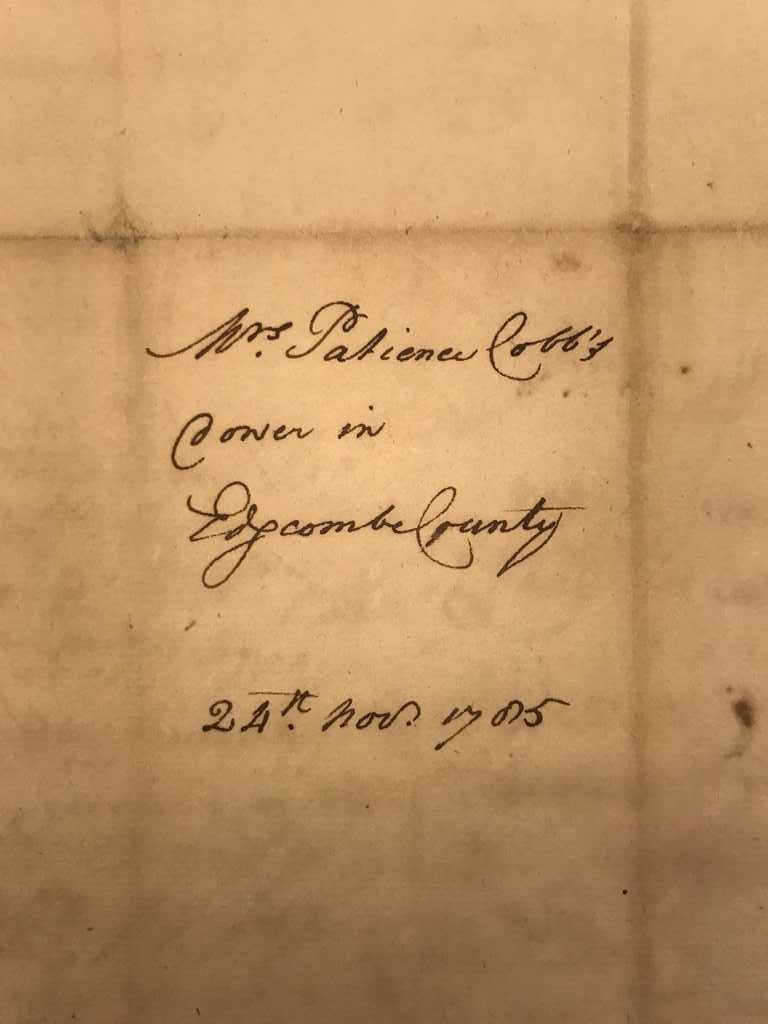 Mrs. Patience Cobb's
dower in
Edgcombe County
24th. Novr. 1785